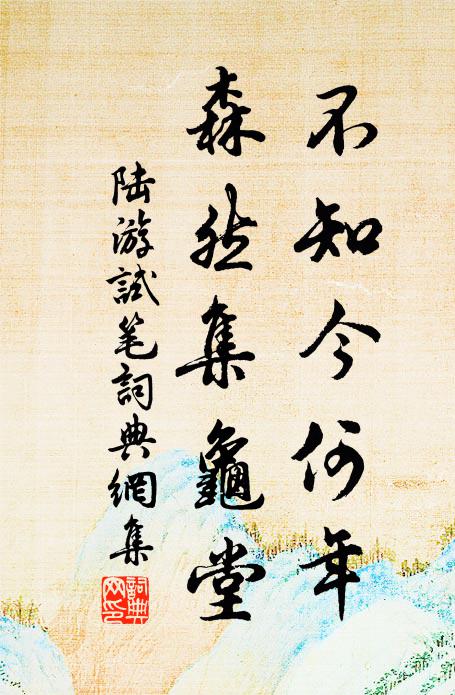 不知今何年
森然集龜堂
陆游試笔詞典網集